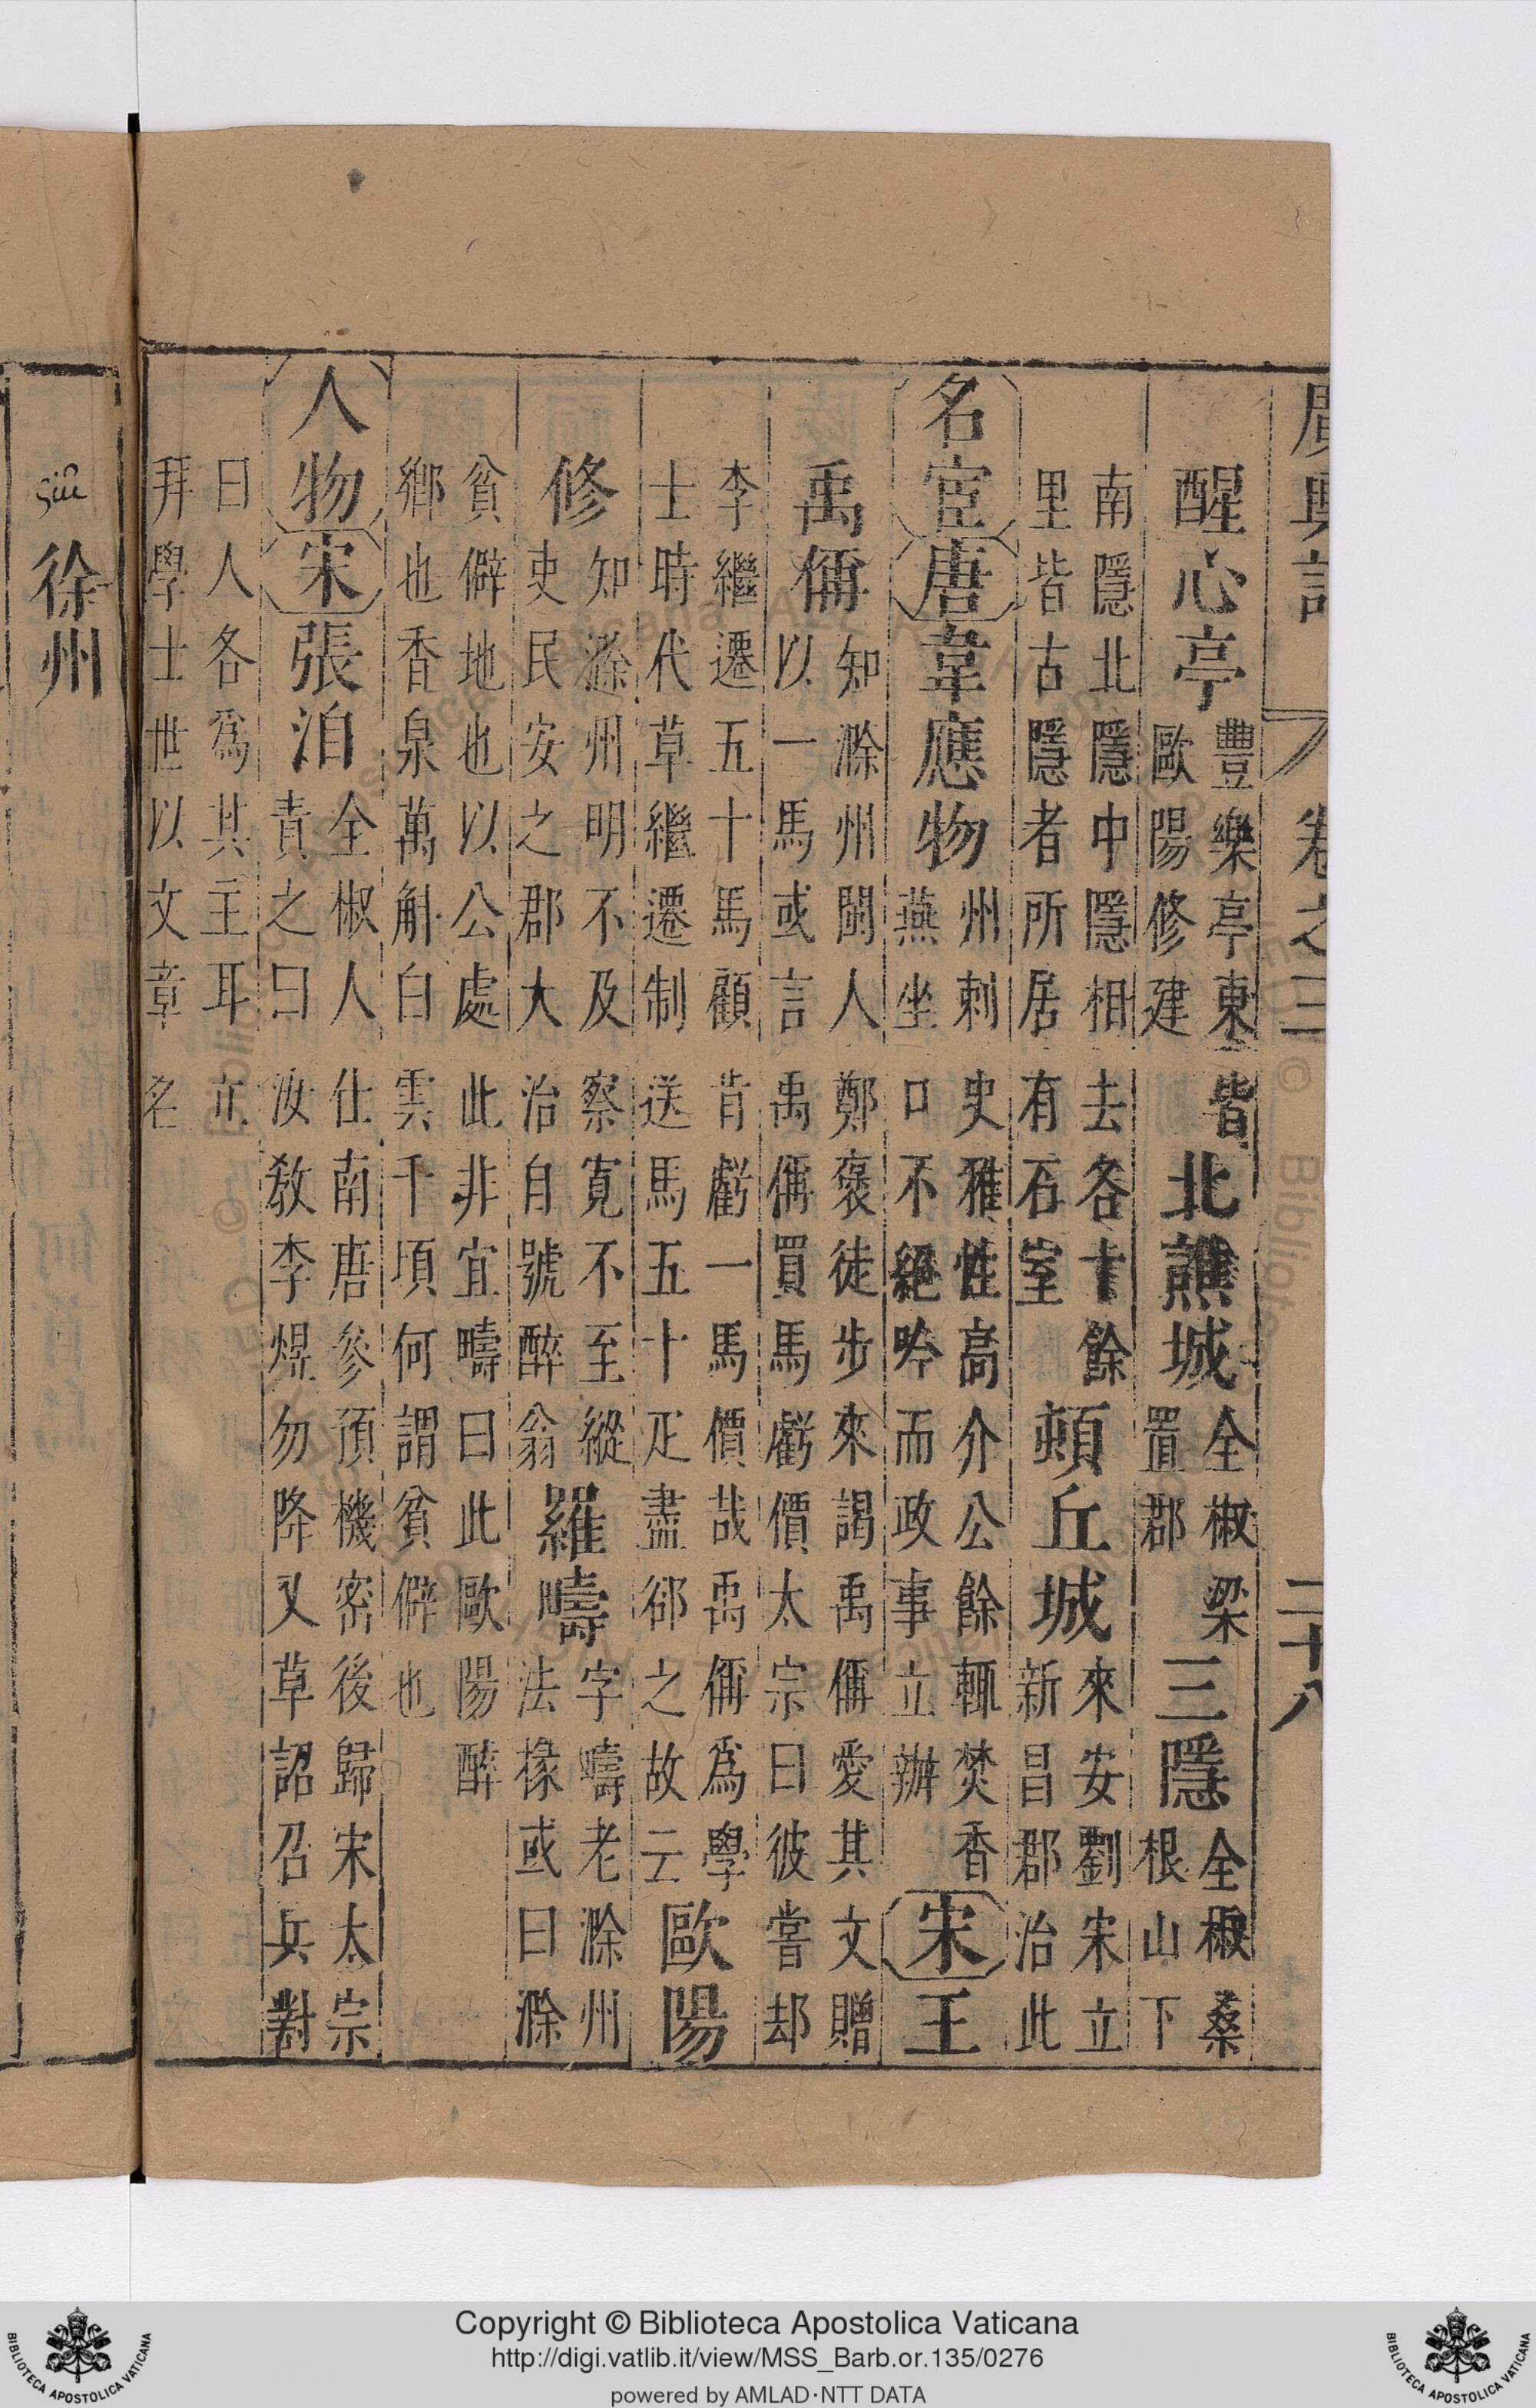 廣輿記 卷之三 二十八
醒心亭 豐樂亭東皆 歐陽修建 北譙城 全椒梁 置郡 三隱 全椒桑 根山下
南隱北隱中隱相去各十餘
里皆古隱者所居有石室 頓丘城 來安劉宋立 新昌郡治此
名宦 唐 韋應物 州刺史雅性高介公餘輒焚香 燕坐口不絕吟而政事立辦 宋 王
禹偁 知滁州閩人鄭褒徒步來謁禹偁愛其文贈 以一馬或言禹偁買馬虧價太宗曰彼嘗却
李繼遷五十馬顧肯虧一馬價哉禹偁爲學 士時代草繼遷制送馬五十疋盡郤之故云 歐陽
修 知滁州明不及察寬不至縱 吏民安之郡大治自號醉翁 羅疇 字疇老滁州 法掾或曰滁
貧僻地也以公處此非宜疇曰此歐陽醉
鄉也香泉萬斛白雲千頃何謂貧僻也
人物 宋 張洎 全椒人仕南唐參預機密後歸宋太宗 責之曰汝敎李煜勿降又草詔召兵對
曰人各爲其主耳立
拜學士世以文章名
siu 徐州
Copyright © Biblioteca Apostolica Vaticana
http://digi.vatlib.it/view/MSS_Barb.or.135/0276
powered by AMLAD·NTT DATA
BIBLIOTECA APOSTOLICA VATICANA
BIBLIOTECA APOSTOLICA VATICANA